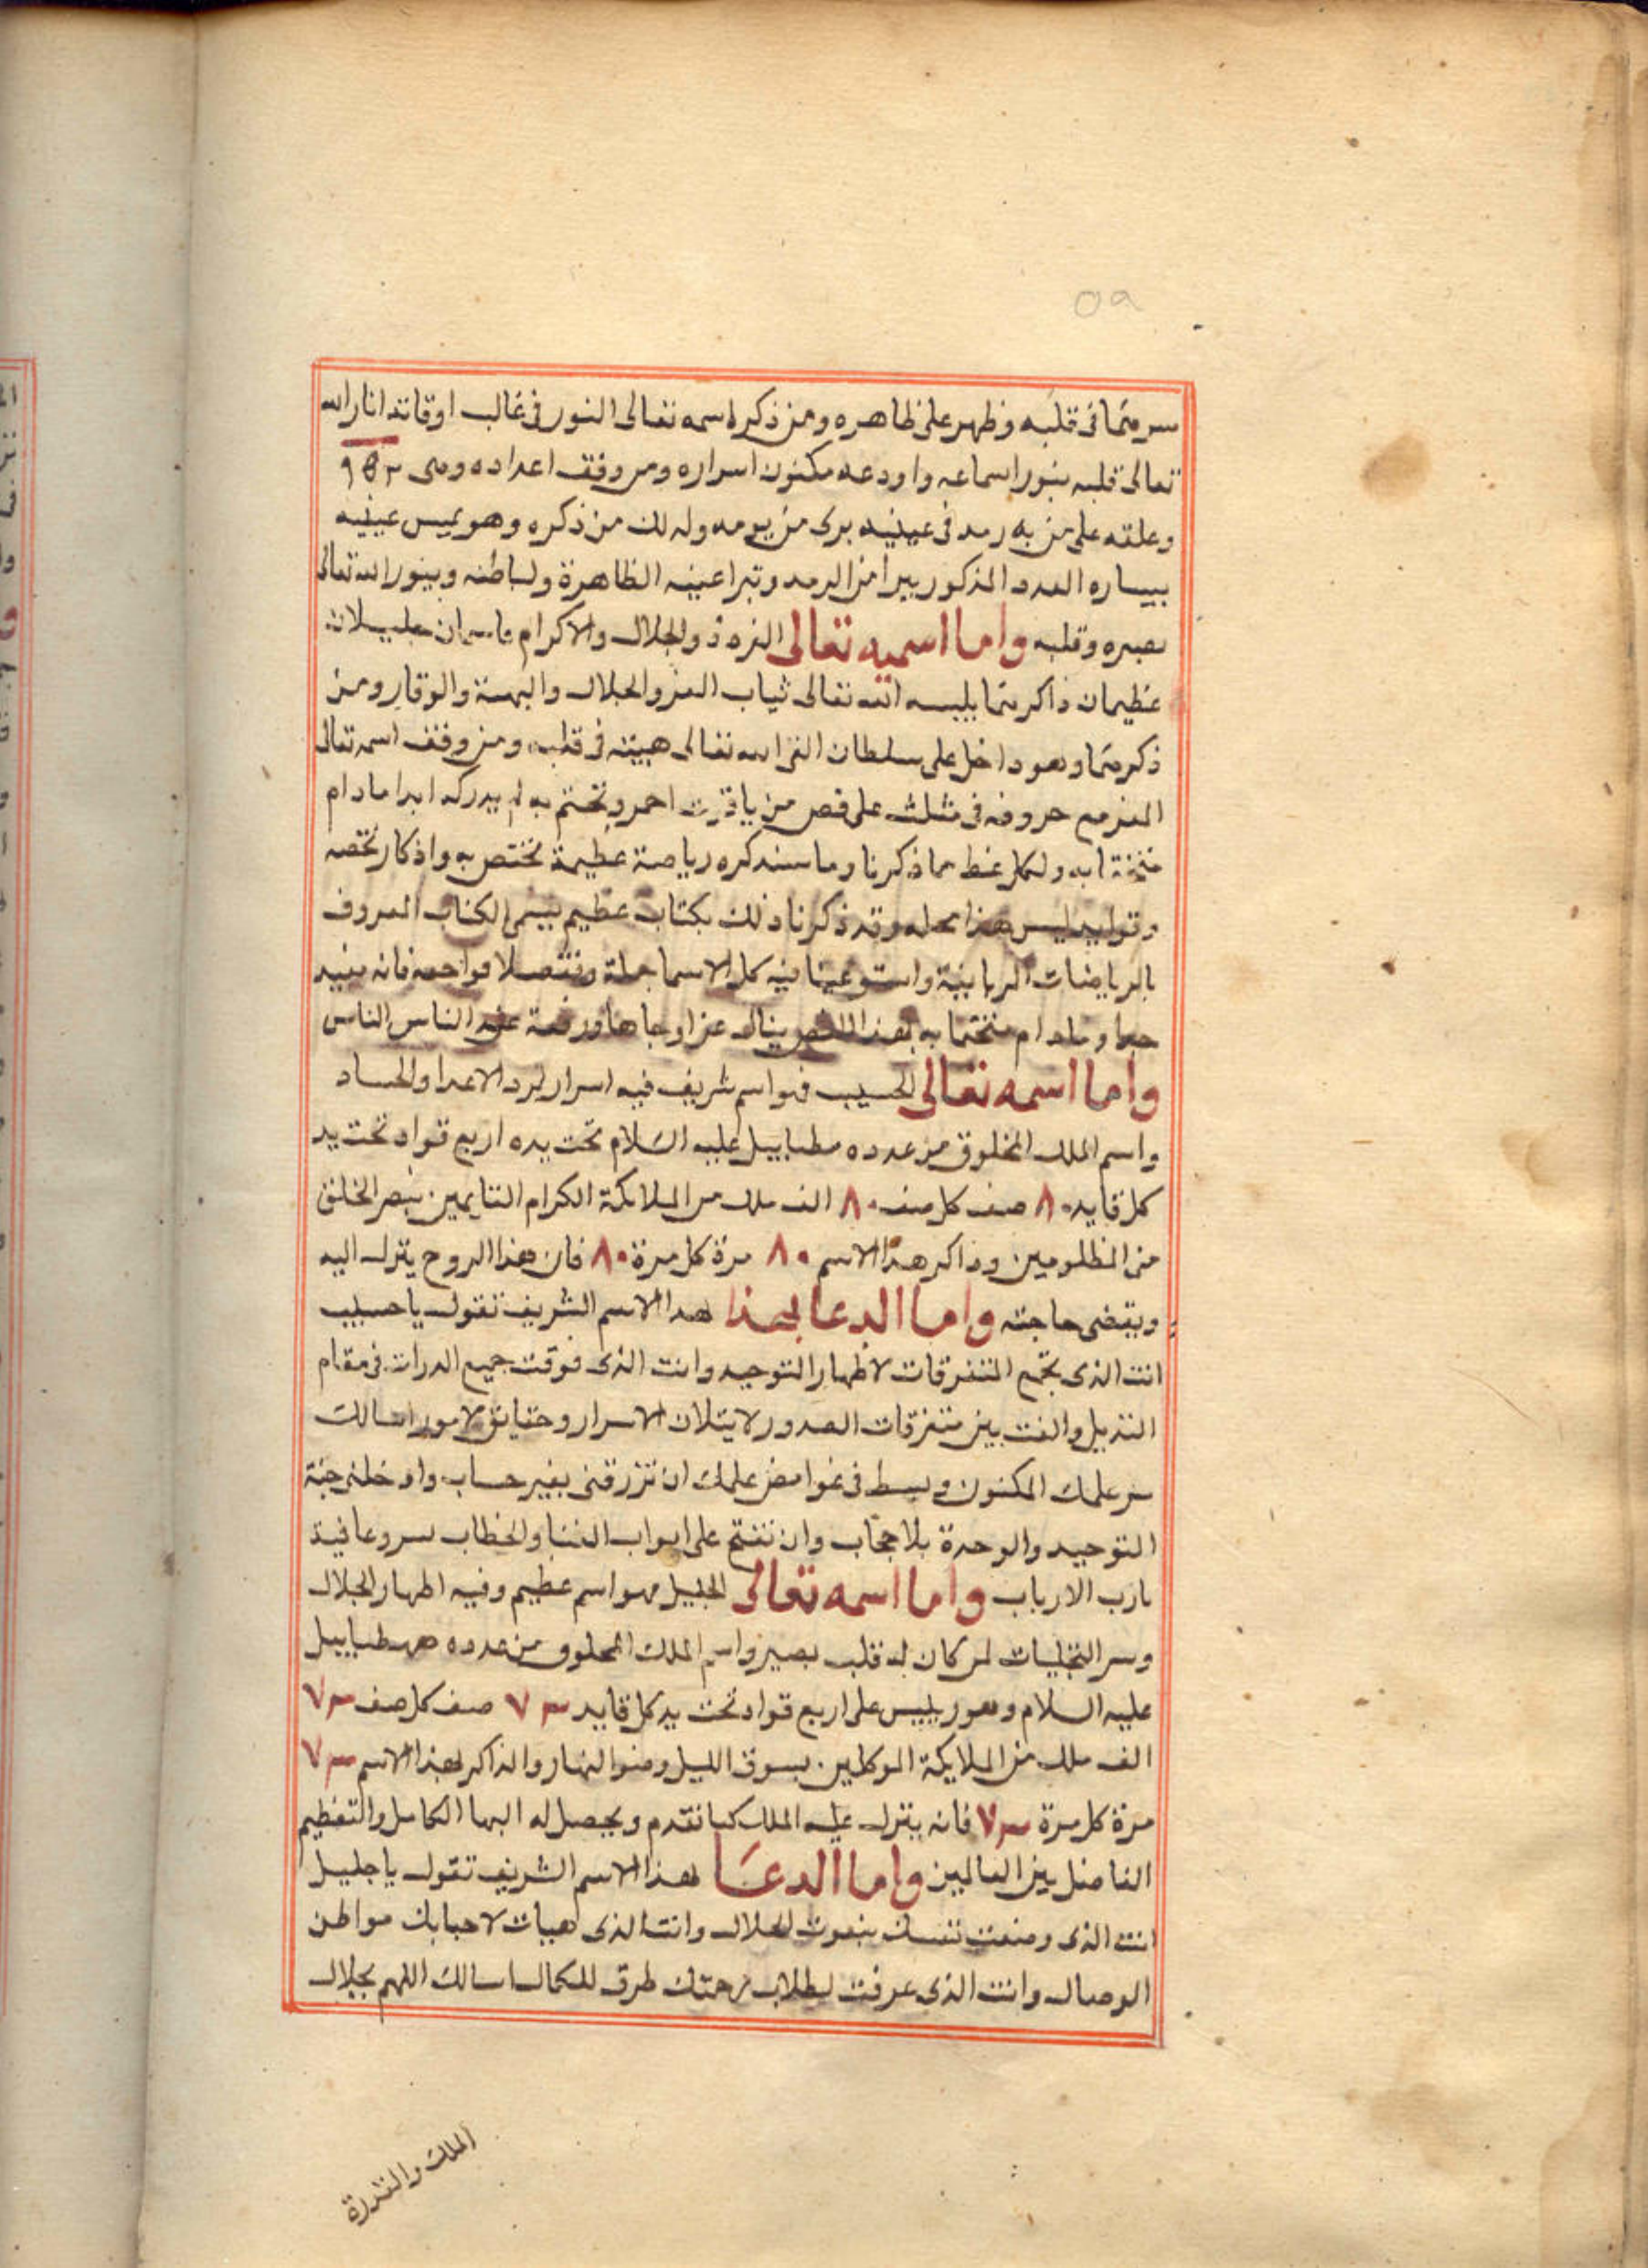 ٥٩
سرهما فى قلبه وظهر على ظاهره ومن ذكر اسمه تعالى النور فى غالب اوقاته انار الله
تعالى قلبه بنور اسماعه واودعه مكنون اسراره ومن وفق اعداده وهى
وعلقه على من به رمد فى عينيه برى من يومه ولذلك من ذكره وهو يمس عينيه
بيساره العدد المذكور يبرا من الرمد وتبرا عينه الظاهرة والباطنه وينور الله تعالى
بصره وقلبه واما اسميه تعالى العزه ذو الجلال والاكرام فاسمان جليلان
عظيمان ذاكرهما يلبسه الله تعالى ثياب العز والجلال والبهية والوقار ومن
ذكرهما وهو داخل على سلطان القى الله تعالى هيبته فى قلبه ومن وفف اسمه تعالى
العز مع حروفه فى مثلث على فص من ياقوت احمر وتختم به لم يدركه ابدا مادام
متختما به ولكل نمط مما ذكرنا وما سنذكره رياضة عظيمة تختص به واذكار تخصه
ليس هذا محله وقد ذكرنا ذلك بكتاب عظيم يسمى الكتاب المعروف
بالرياضات الربانية واستوعبنا فيه كل الاسما جملة وتفصيلا فراجعه فانه مفيد
جدا ومادام متختما به بهذا الفص ينال عزا وجاها ورفعة عند الناس الناس
واما اسمه تعالى الحسيب فهو اسم شريف فيه اسرار لرد الاعدا والحساد
واسم الملك المخلوق من عدده مطياييل عليه السلام تحت يده اربع قواد تحت يد
كل قايد ٨٠ صف كل صف ٨٠ الف ملك من الملايكة الكرام القايمين بنصر الخلق
من المظلومين وذاكر هذا الاسم ٨٠ مرة كل مرة ٨٠ فان هذا الروح ينزل اليه
ويقضى حاجته واما الدعا بهذا هذا الاسم الشريف تقول يا حسيب
انت الذى تجمع المتفرقات لاظهار التوحيد وانت الذى فوقت جميع الدرات فى مقام
التنزيل والفت بين متفرقات الصدور لايتلاف الاسرار وحقايق الامور اسالك
سر علمك المكنون وبسط فى غوامض علمك ان ترزقنى بغير حساب وادخلنى جنة
التوحيد والوحدة بلا حجاب وان تفتح على ابواب الفنا والخطاب بسر وعافية
يارب الارباب واما اسمه تعالى الجليل فهو اسم عظيم وفيه اظهار الجلال
وسر التجليات لمن كان له قلب بصير واسم الملك المخلوق من عدده
عليه السلام وهو رييس على اربع قواد تحت يد كل قايد ٧٣ صف كل صف ٧٣
الف ملك من الملايكة الموكلين بسوق الليل وضو النهار والذاكر لهذا الاسم ٧٣
مرة كل مرة ٧٣ فانه ينزل عليه الملك كما تقدم ويحصل له البها الكامل والتعظيم
الفاضل بين العالمين واما الدعا لهذا الاسم الشريف تقول يا جليل
انت الذى وصفت نفسك بنعوت الجلال وانت الذى هيات لاحبابك مواطن
الوصال وانت الذى عرفت لطلاب رحمتك طرق للكمال اسالك اللهم بجلال
الملك والقدرة